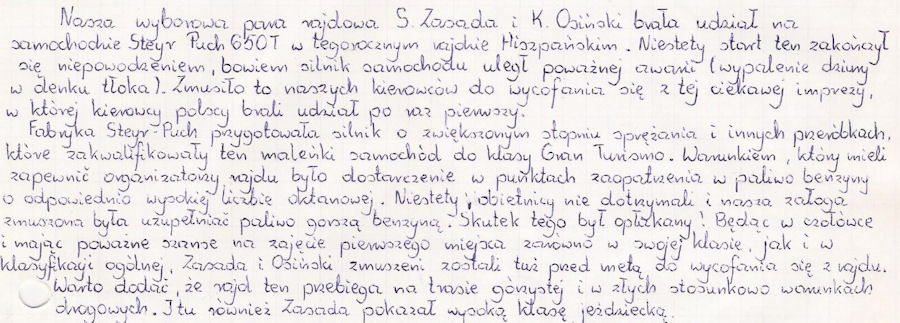 Nasza wyborowa para rajdowa S. Zasada i K. Osiński brała udział na
samochodzie Steyr Puch 650T w tegorocznym rajdzie Hiszpańskim. Niestety start ten zakończył
się niepowodzeniem, bowiem silnik samochodu uległ poważnej awarii (wypalenie dziury
w denku tłoka). Zmusiło to naszych kierowców do wycofania się z tej ciekawej imprezy,
w której kierowcy polscy brali udział po raz pierwszy.
Fabryka Steyr-Puch przygotowała silnik o zwiększonym stopniu sprężania i innych przeróbkach,
które zakwalifikowały ten maleńki samochód do klasy Gran Turismo. Warunkiem, który mieli
zapewnić organizatorzy rajdu było dostarczenie w punktach zaopatrzenia w paliwo benzyny
o odpowiednio wysokiej liczbie oktanowej. Niestety, obietnicy nie dotrzymali i nasza załoga
zmuszona była uzupełniać paliwo gorszą benzyną. Skutek tego był opłakany! Będąc w czołówce
i mając poważne szanse na zajęcie pierwszego miejsca zarówno w swojej klasie, jak i w
klasyfikacji ogólnej, Zasada i Osiński zmuszeni zostali tuż przed metą do wycofania się z rajdu.
Warto dodać, że rajd ten przebiega na trasie górzystej i w złych stosunkowo warunkach
drogowych. I tu również Zasada pokazał wysoką klasę jeździecką.